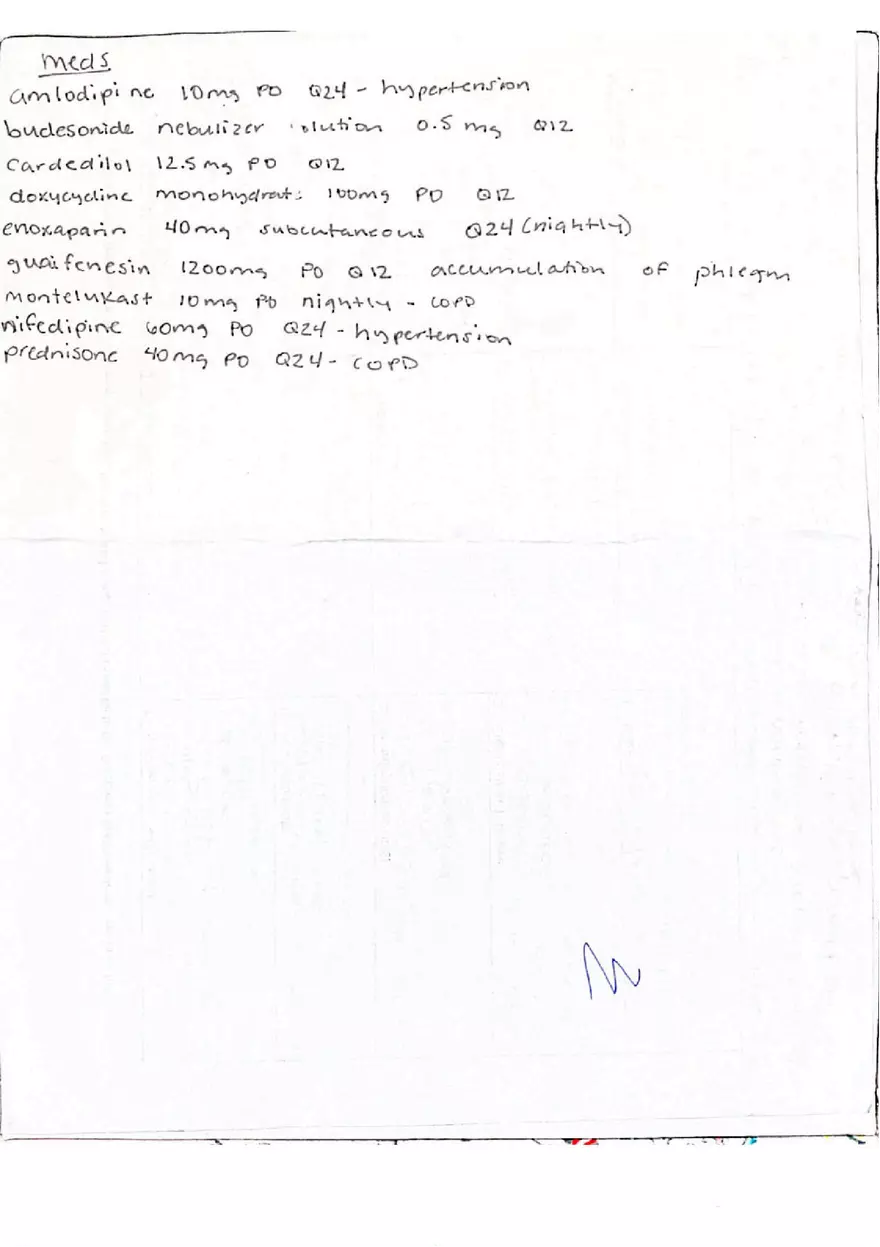 Meds
amlodipine 10mg PO Q24 - hypertension
budesonide nebulizer solution 0.5 mg Q12
Cardedilol 12.5mg PO Q12
doxycycline monohydrate 100mg PO Q12
enoxaparin 40mg subcutaneous Q24 (nightly)
guaifenesin 1200mg PO Q12 accumulation of phlegm
Montelukast 10mg PO nightly - COPD
nifedipine 60mg PO Q24 - hypertension
prednisone 40mg PO Q24 - COPD